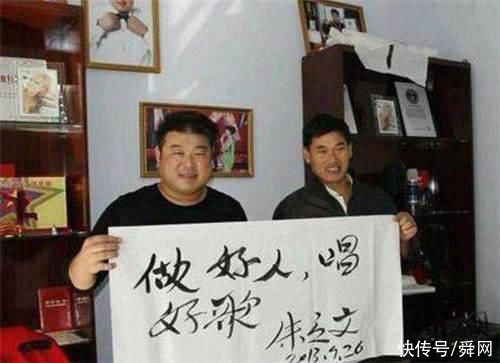 做好人，唱
好歌
朱之文
2013.9.26
快传号/舜网